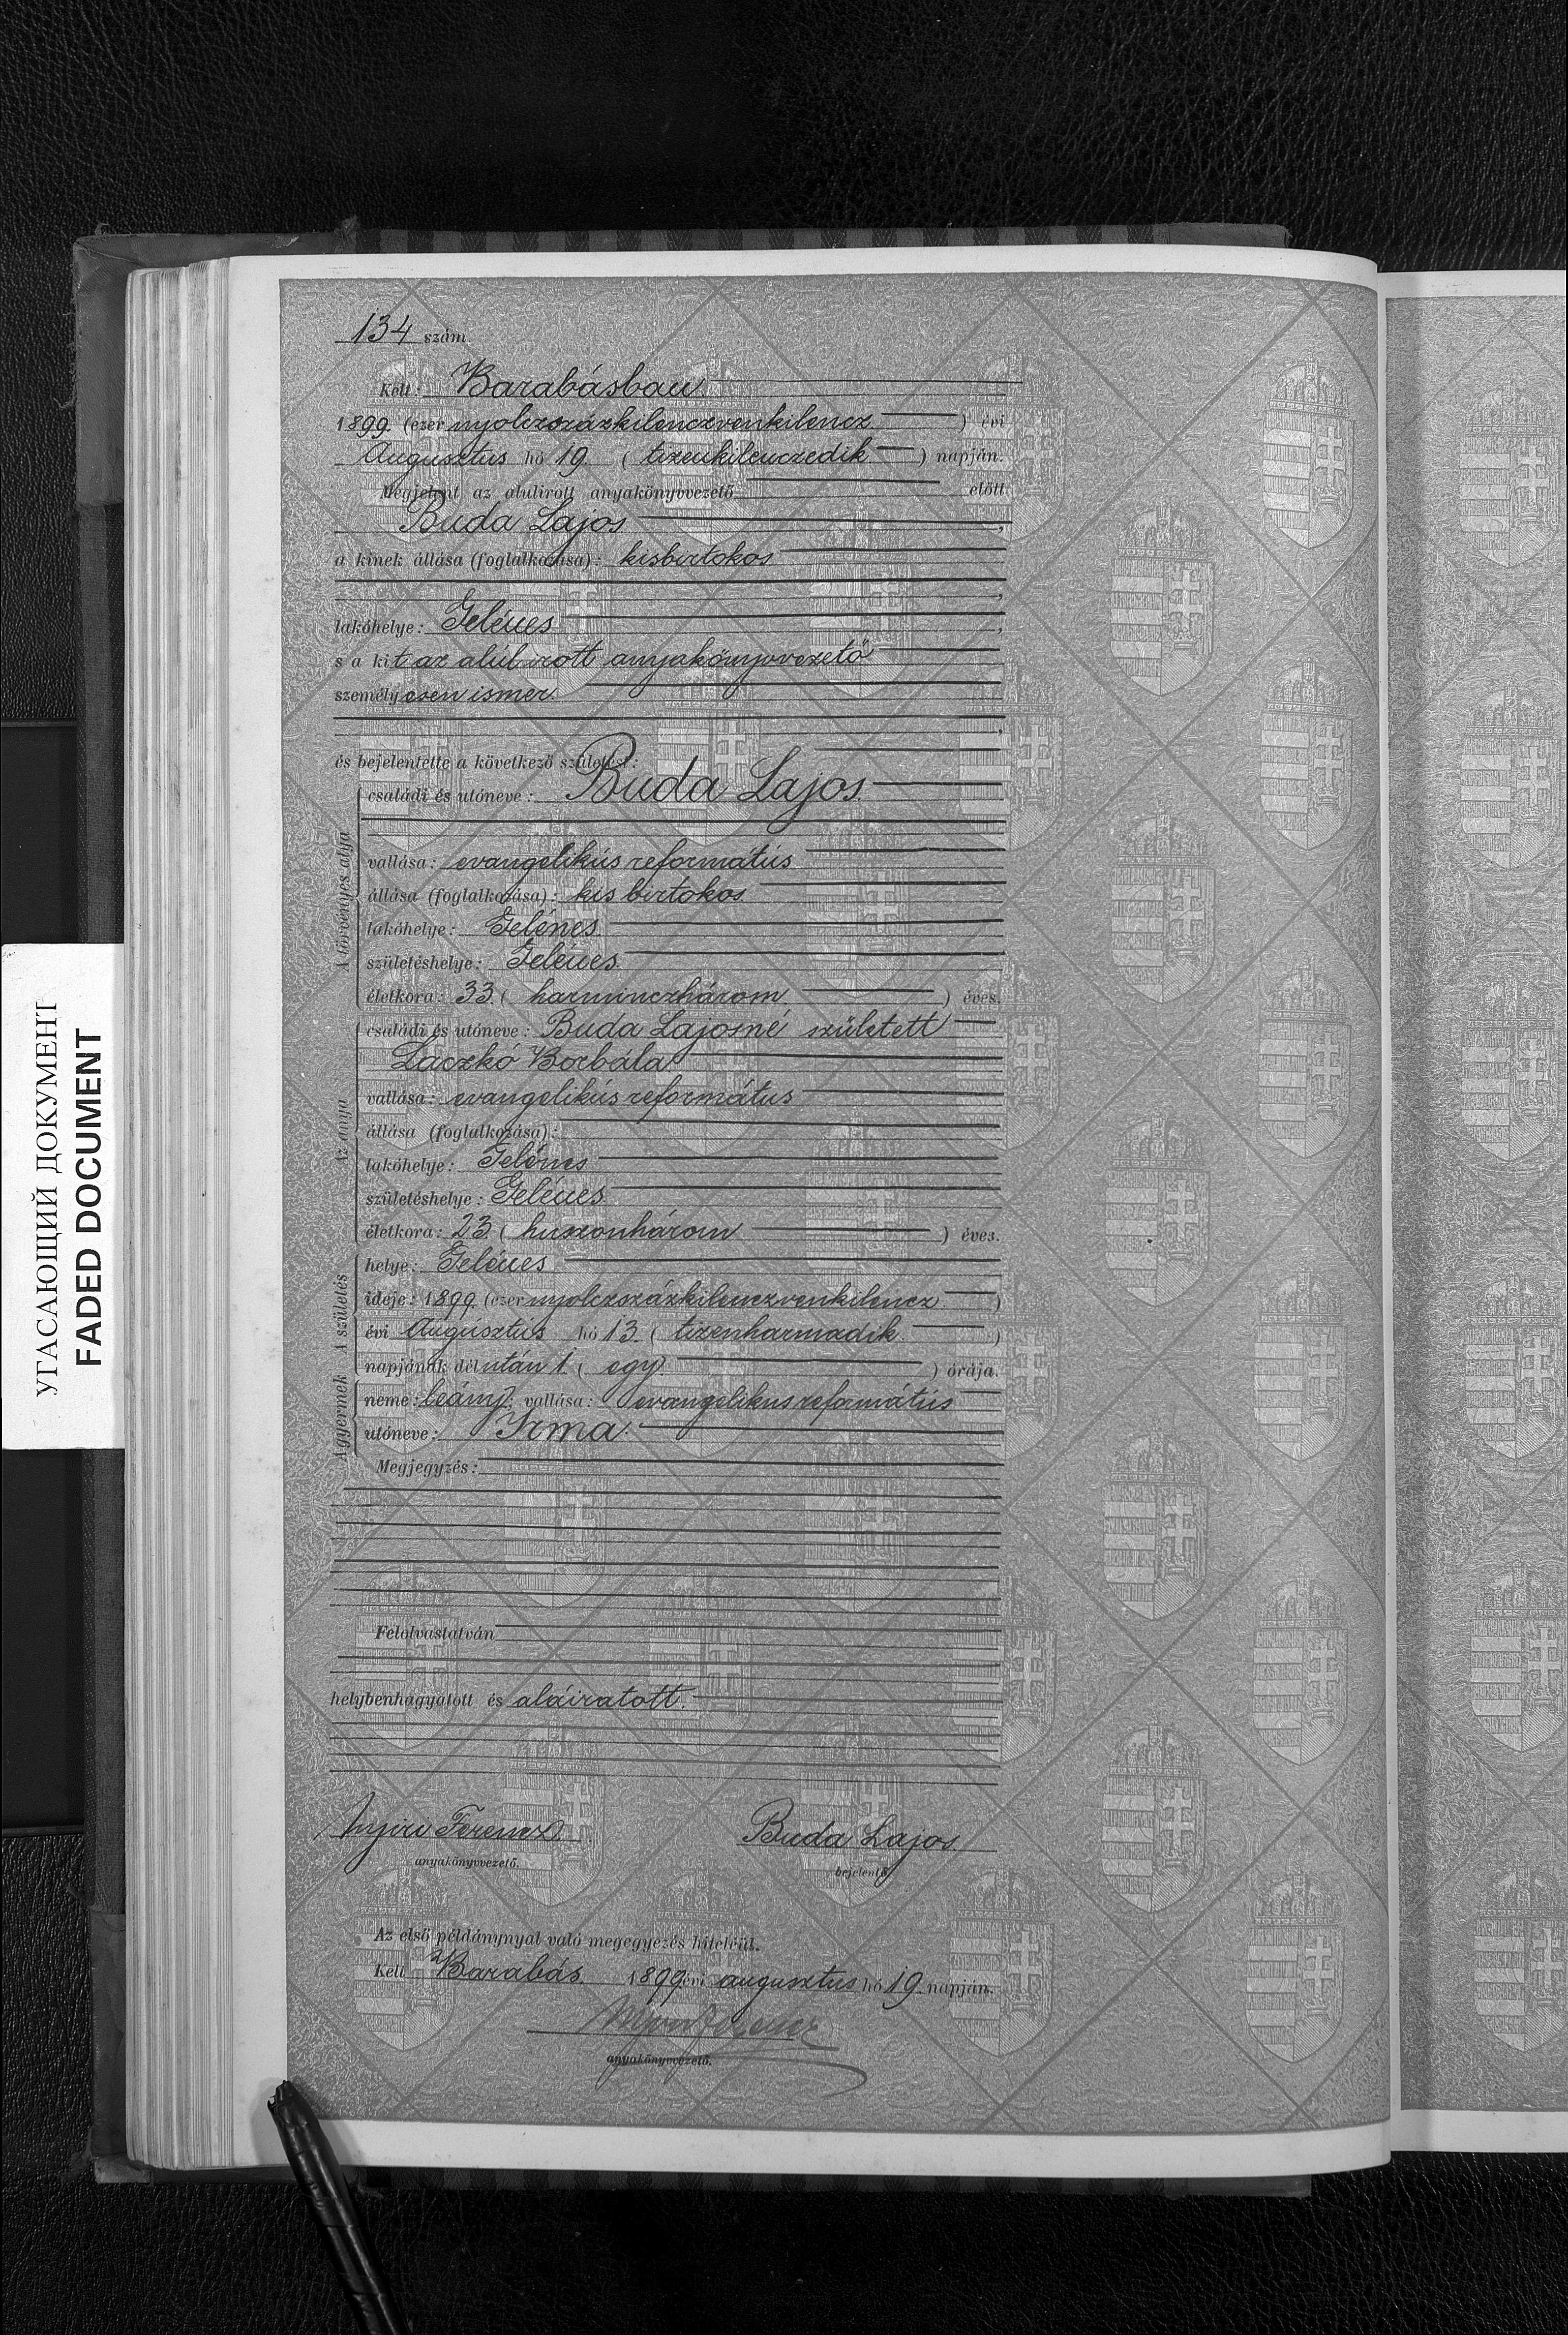 134 szám.
Kelt: Barabásban
1899. (ezer nyolczszázkilenczvenkilencz) évi
Augusztus hó 19 (tizenkilenczedik) napján.
Megjelent az alulirott anyakönyvvezető előtt
Buda Lajos,
a kinek állása (foglalkozása): kisbirtokos
lakóhelye: Gelénes,
s a kit az alúlirott anyakönyvvezető
személyesen ismer.
és bejelentette a következő születést:
A törvényes atya
családi és utóneve: Buda Lajos
vallása: evangelikús református
állása (foglalkozása): kis birtokos
lakóhelye: Gelénes
születéshelye: Gelénes
életkora: 33. (harminczhárom) éves.
Az anya
családi és utóneve: Buda Lajosné született
Laczkó Borbála
vallása: evangelikús református
állása (foglalkozása):
lakóhelye: Gelénes
születéshelye: Gelénes
életkora: 23. (huszonhárom) éves.
A születés
helye: Gelénes
ideje: 1899. (ezer nyolczszázkilenczvenkilencz)
évi Augúsztus hó 13. (tizenharmadik)
napjának délután 1. (egy) órája.
A gyermek
neme: leány; vallása: evangelikus református
utóneve: Irma.
Megjegyzés:
Felolvastatván
helybenhagyatott és aláiratott.
Nyiri Ferencz Buda Lajos
anyakönyvvezető. bejelentő
Az első példánynyal való megegyezés hiteléül.
Kelt Barabás 1899 évi augusztus hó 19. napján.
Nyiri Ferencz
anyakönyvvezető.
УГАСАЮЩИЙ ДОКУМЕНТ
FADED DOCUMENT